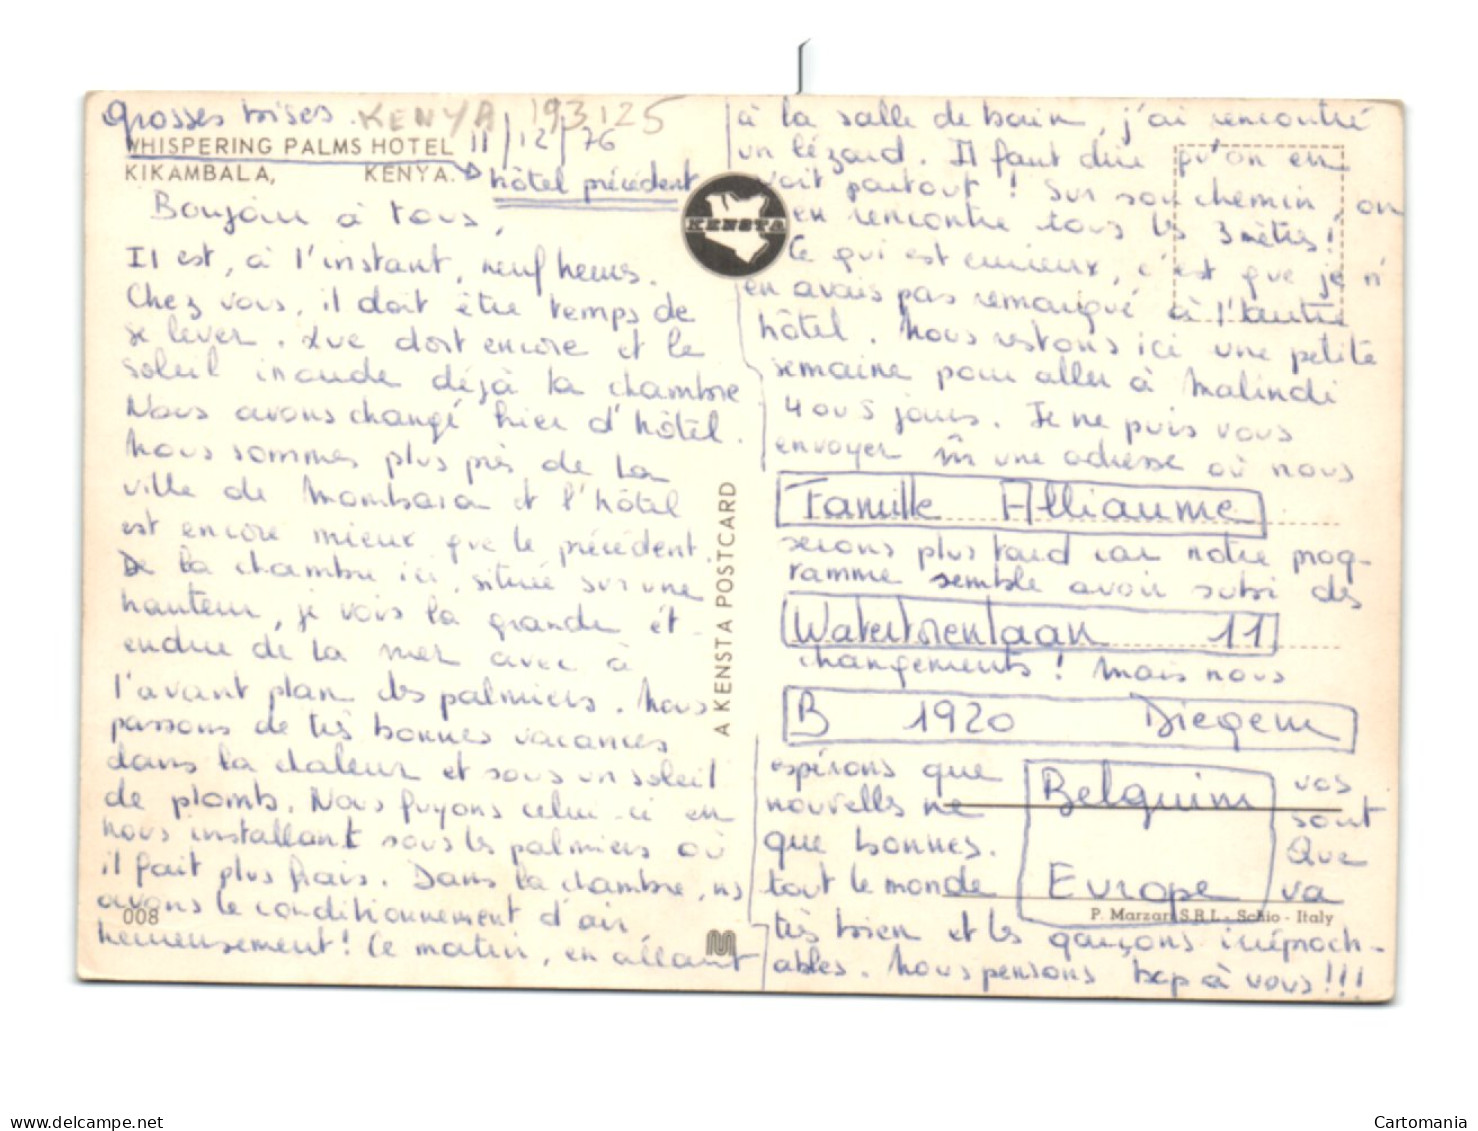 Grosses bises. KENYA 193125
WHISPERING PALMS HOTEL 11/12/76
KIKAMBALA, KENYA. → hôtel précédent
Bonjour à tous,
Il est, à l'instant, neuf heures.
Chez vous, il doit être temps de
se lever. Luc dort encore et le
soleil inonde déjà la chambre
Nous avons changé hier d'hôtel.
Nous sommes plus près de la
ville de Mombasa et l'hôtel
est encore mieux que le précédent.
De la chambre ici, située sur une
hauteur, je vois la grande ét-
endue de la mer avec à
l'avant plan des palmiers. Nous
passons de très bonnes vacances
dans la chaleur et sous un soleil
de plomb. Nous fuyons celui-ci en
nous installant sous les palmiers où
il fait plus frais. Dans la chambre, ns
avons le conditionnement d'air,
008
heureusement! Ce matin, en allant
KENSTA
A KENSTA POSTCARD
à la salle de bain, j'ai rencontré
un lézard. Il faut dire qu'on en
voit partout! Sur son chemin, on
en rencontre tous les 3 mètres!
Ce qui est curieux, c'est que je n'
en avais pas remarqué à l'autre
hôtel. Nous restons ici une petite
semaine pour aller à Malindi
4 ou 5 jours. Je ne puis vous
envoyer une adresse où nous
Famille Alliaume
serons plus tard car notre prog-
ramme semble avoir subi des
Watertorenlaan 11
changements! Mais nous
B 1920 Diegem
espérons que vos
nouvelles ne sont
que bonnes. Que
tout le monde va
Belguim
Europe
P. Marzari S.R.L - Schio - Italy
très bien et les garçons irréproch-
ables. Nous pensons bcp à vous!!!
www.delcampe.net
Cartomania